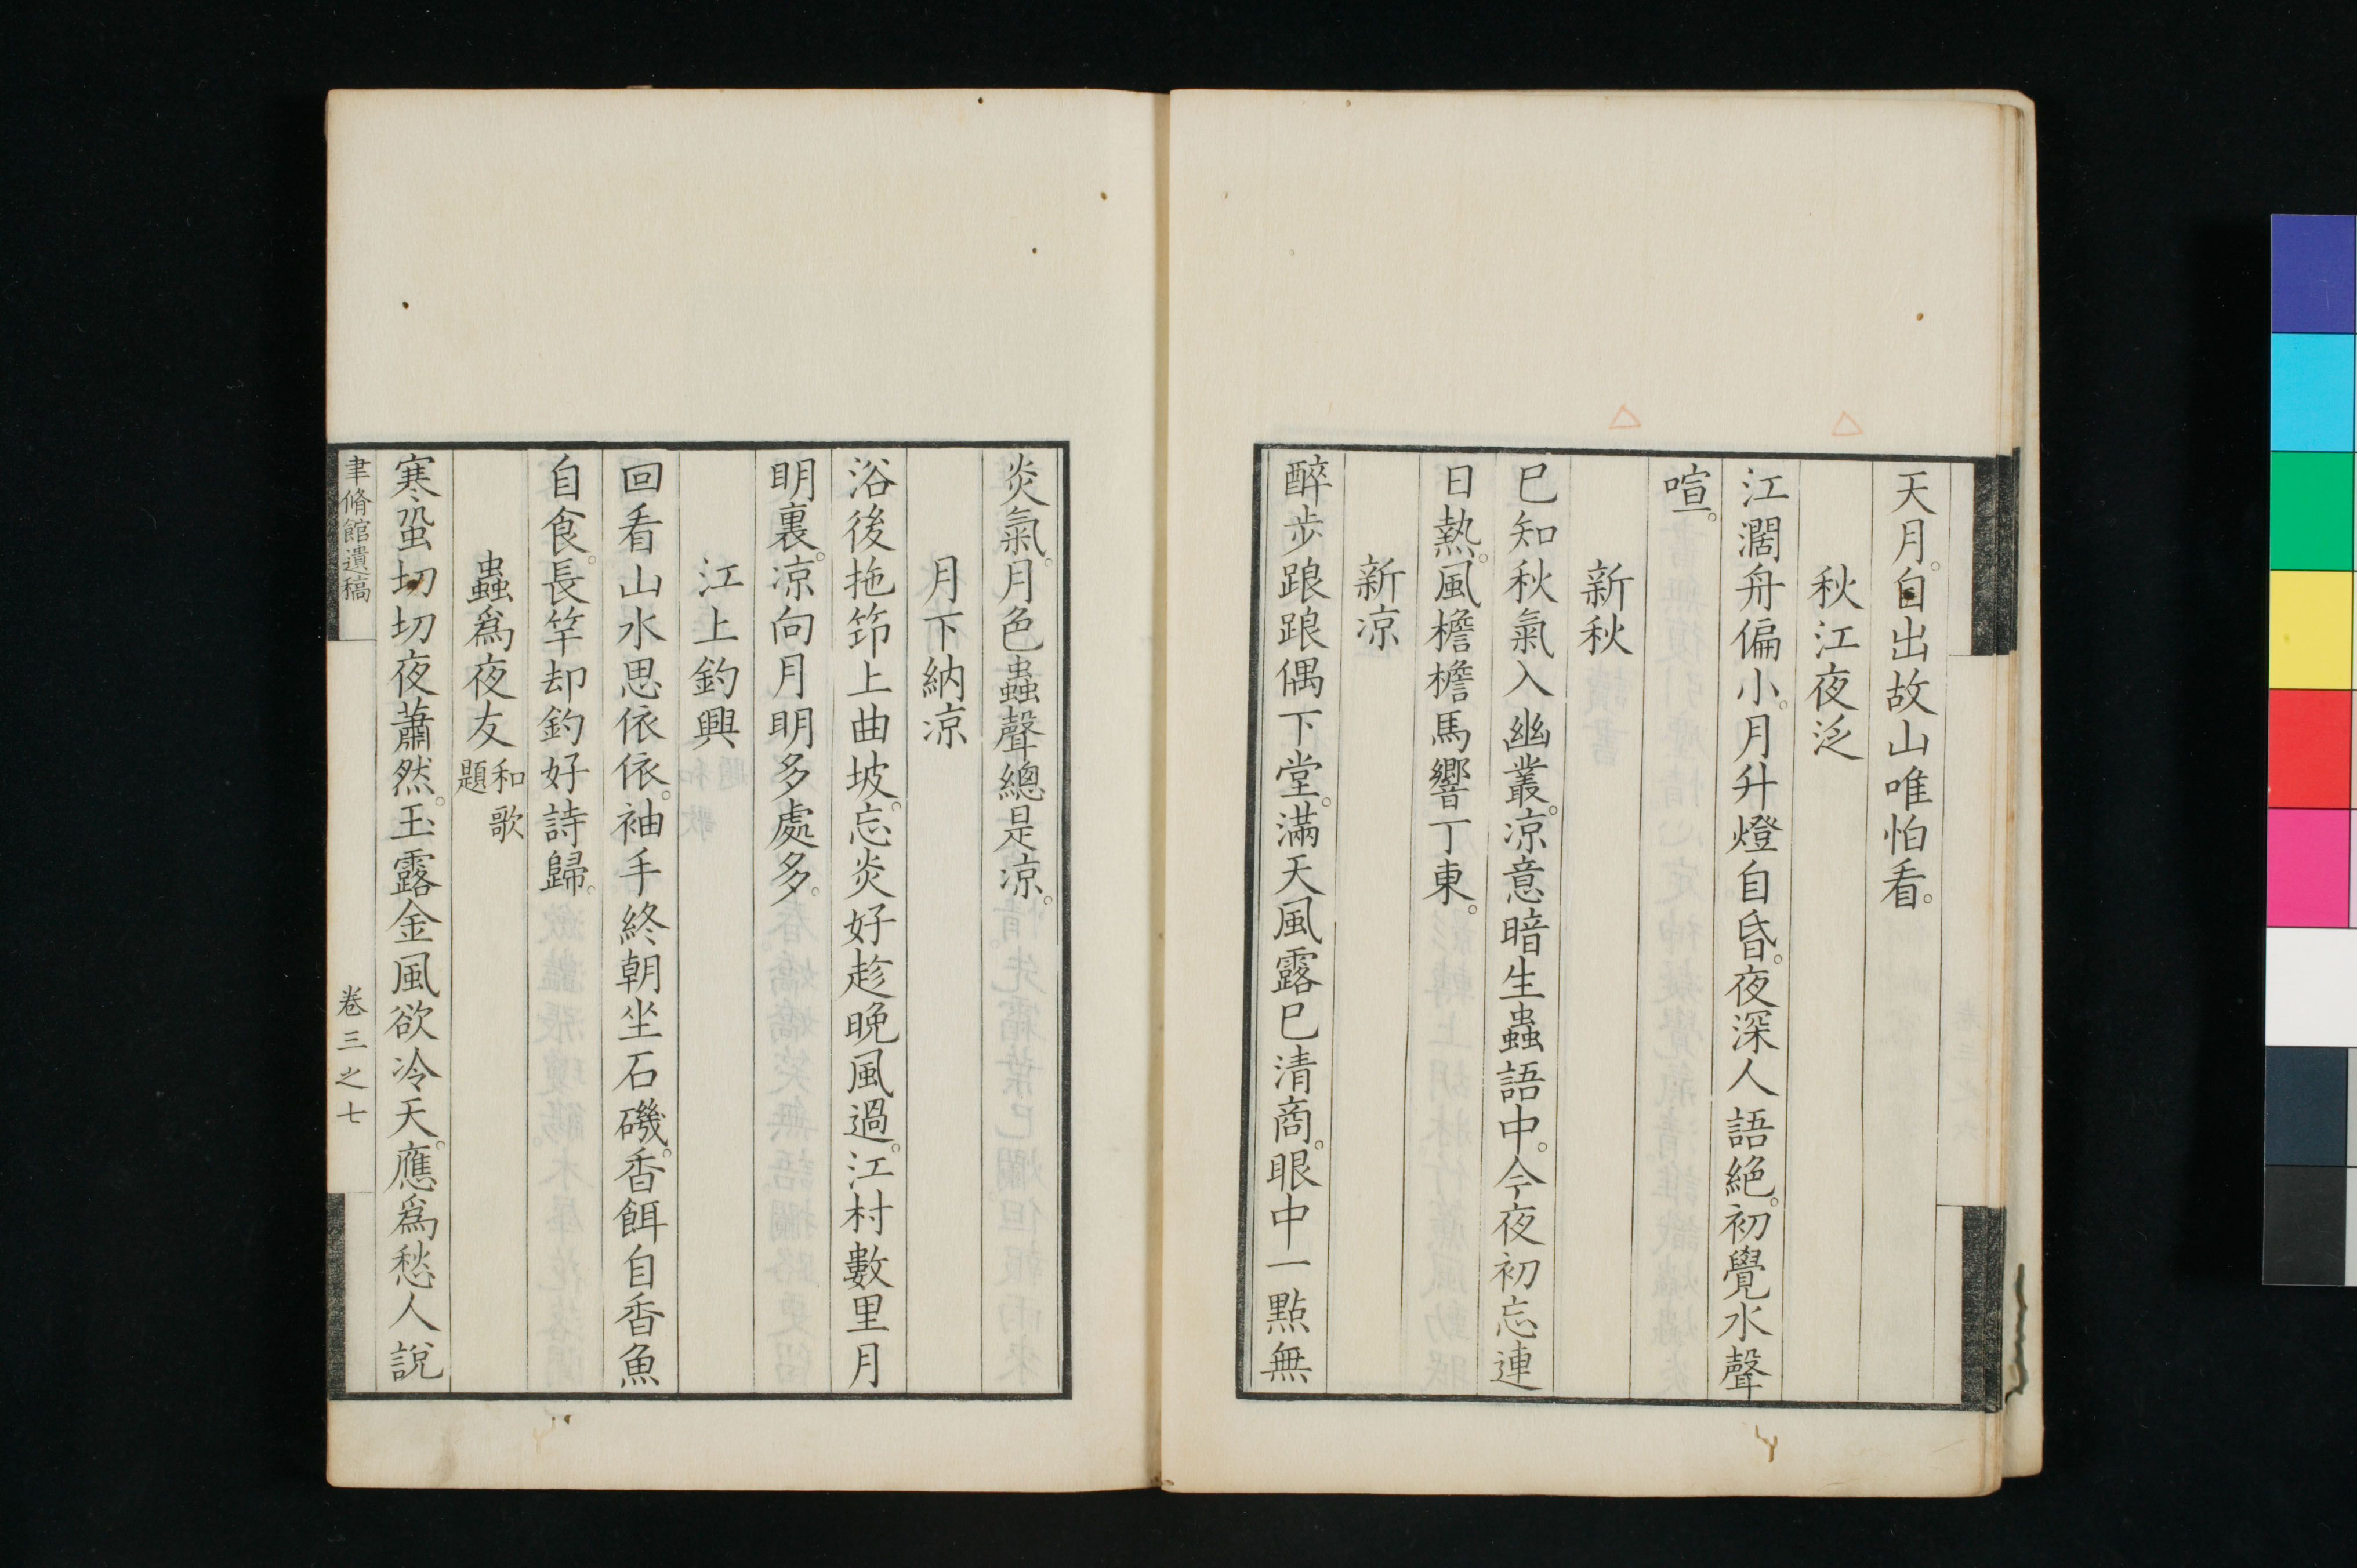 天月。自出故山唯怕看。
秋江夜泛
江濶舟偏小。月升燈自昏。夜深人語絶。初覺水聲
喧。
新秋
已知秋氣入幽叢。凉意暗生蟲語中。今夜初忘連
日熱。風檐檐馬響丁東。
新凉
醉歩踉踉偶下堂。滿天風露已清商。眼中一點無
炎氣。月色蟲聲總是凉。
月下納凉
浴後拖筇上曲坡。忘炎好趁晚風過。江村數里月
明裏。凉向月明多處多。
江上釣興
回看山水思依依。袖手終朝坐石磯。香餌自香魚
自食。長竿却釣好詩歸。
蟲爲夜友 和歌題
寒蛩切切夜蕭然。玉露金風欲冷天。應爲愁人説
聿脩館遺稿 卷三之七